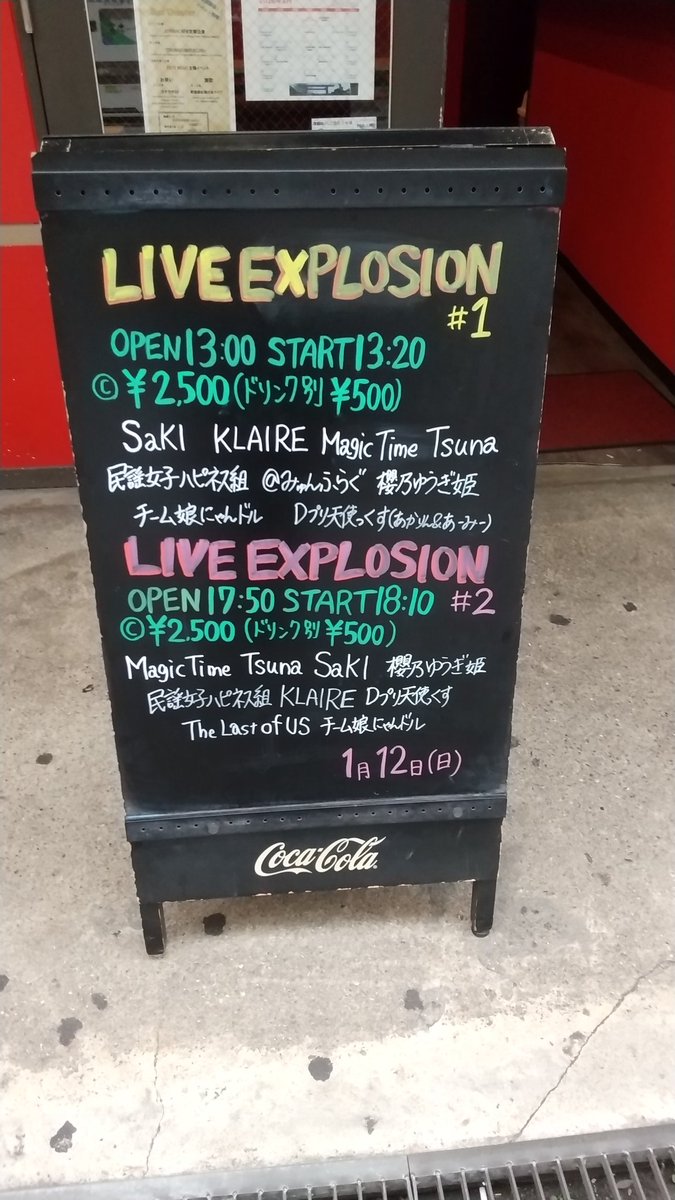 LIVE EXPLOSION
#1
OPEN13:00 START13:20
©¥2,500(ドリンク別¥500)
SaKI KLAIRE MagicTime Tsuna
民謡女子ハピネス組 @みゅんふらぐ 櫻乃ゆうぎ姫
チーム娘にゃんドル Dプリ天使っくす(あかりん&あーみー)
LIVE EXPLOSION
OPEN17:50 START18:10 #2
©¥2,500 (ドリンク別 ¥500)
MagicTime Tsuna SaKI 櫻乃ゆうぎ姫
民謡女子ハピネス組 KLAIRE Dプリ天使っくす
The Last of US チーム娘にゃんドル
1月12日(日)
Coca-Cola